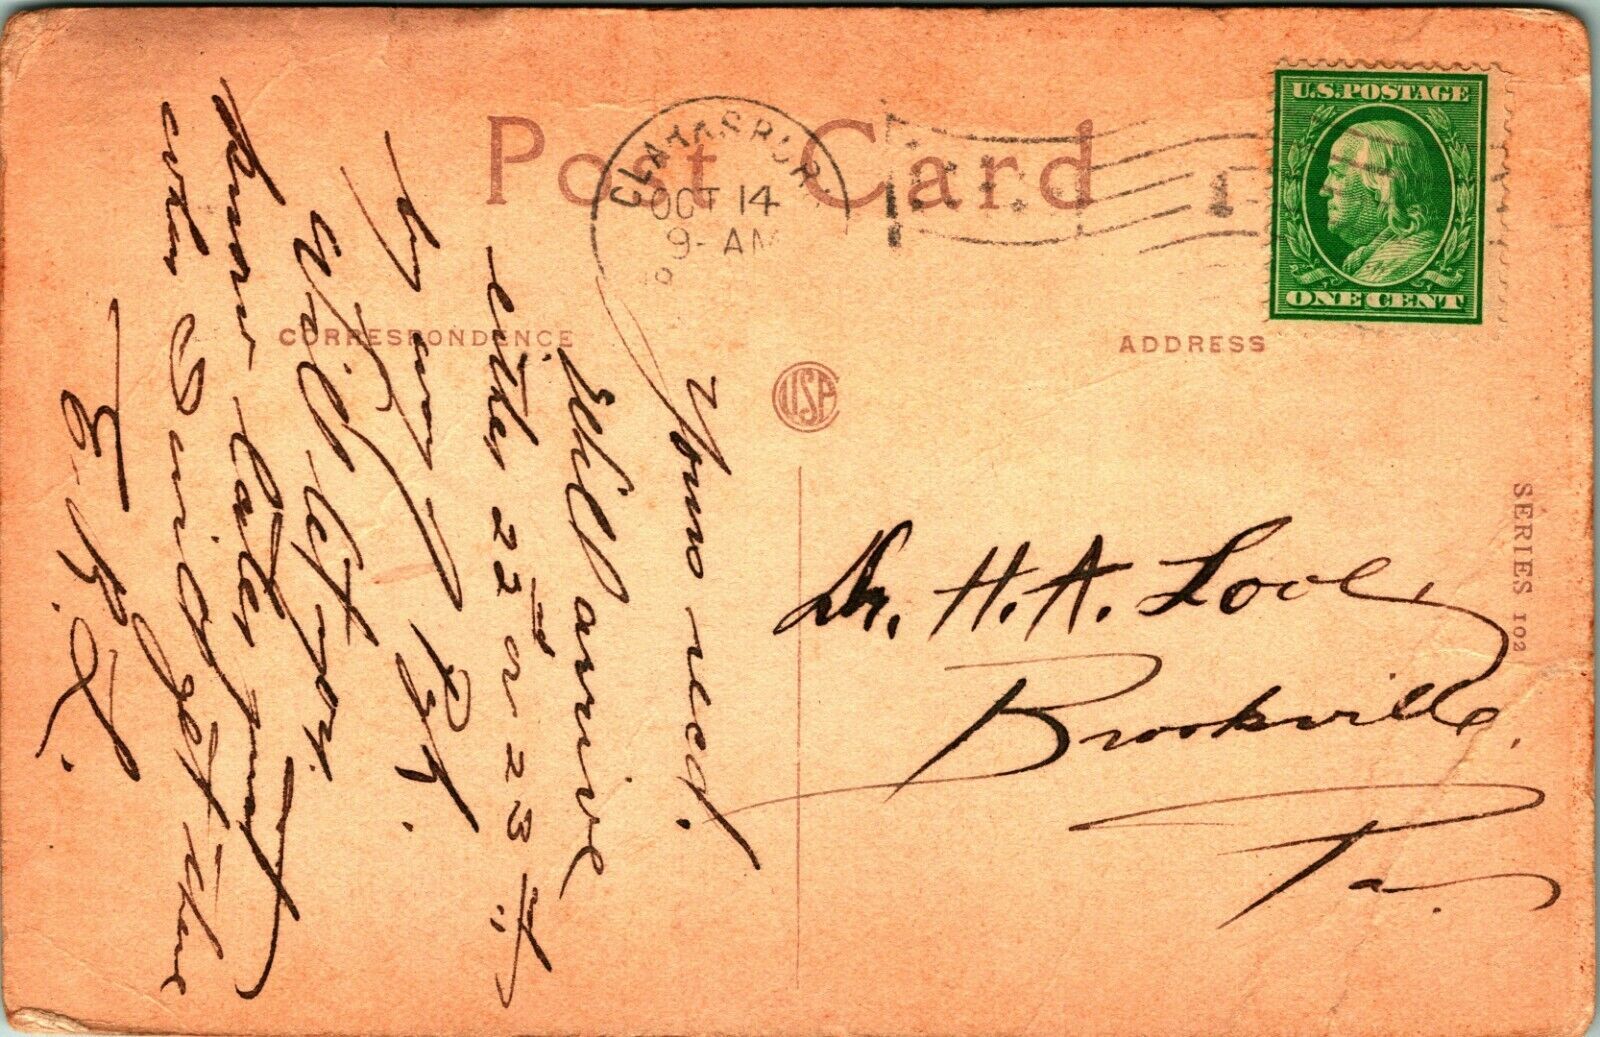 Post Card
CLARKSBUR
OCT 14
9-AM
U.S.POSTAGE
ONE CENT
CORRESPONDENCE
ADDRESS
USPC
SERIES 102
Yours recd.
Will arrive
either 22nd or 23rd
by way of Pgh.
Will let you
know later just
when I will get there
E. B. L.
Dr. H. A.
Brookville,
Pa.